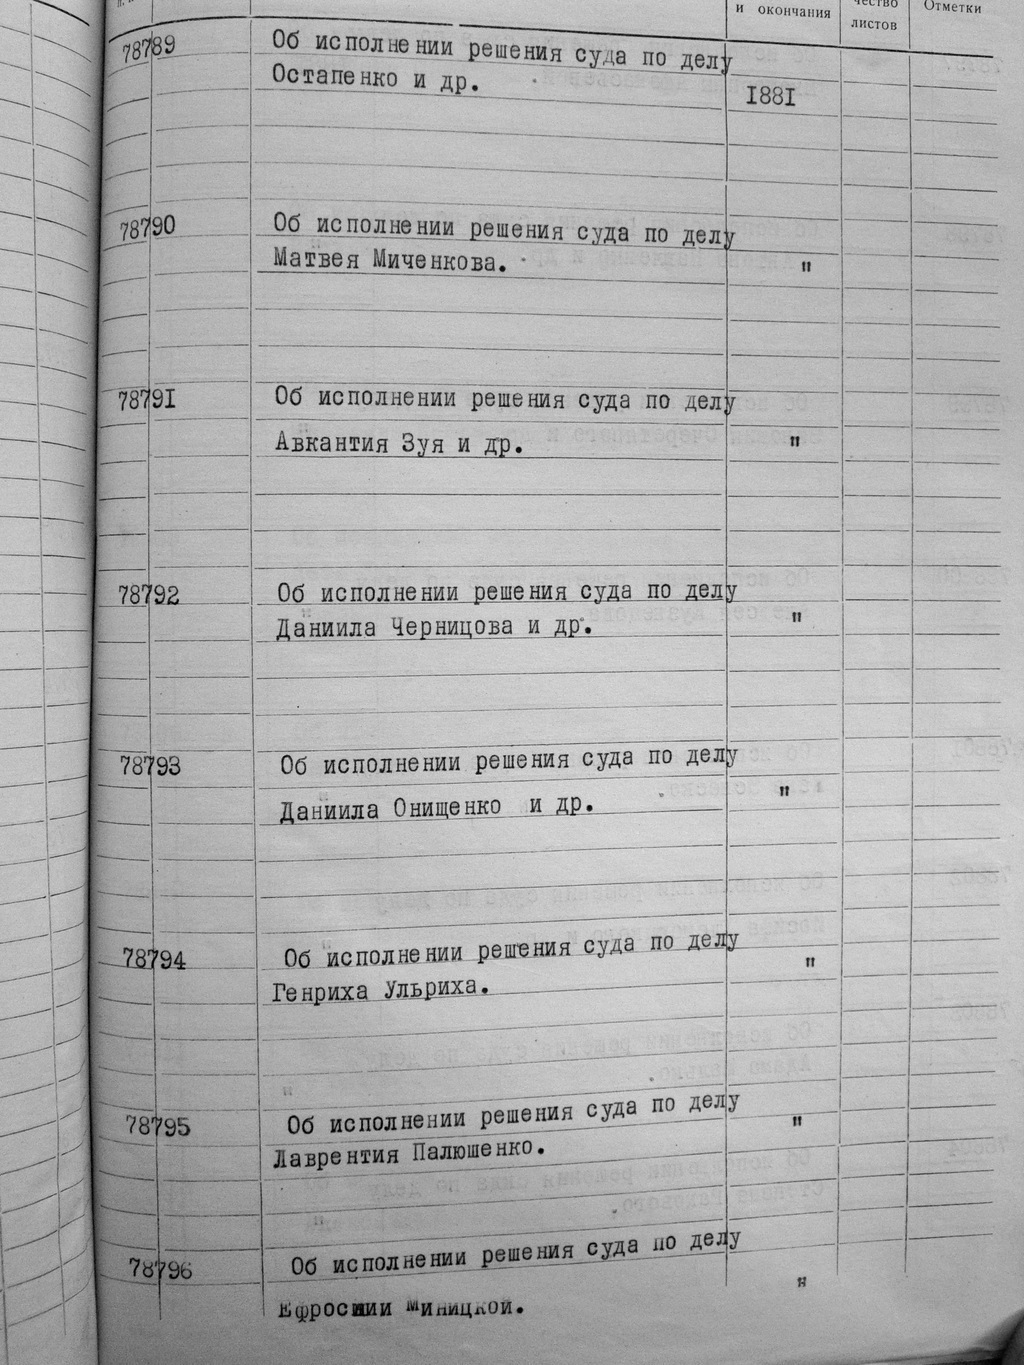 и окончания
чество
листов
Отметки
78789 Об исполнении решения суда по делу
Остапенко и др. 1881
78790 Об исполнении решения суда по делу
Матвея Миченкова. "
78791 Об исполнении решения суда по делу
Авкантия Зуя и др. "
78792 Об исполнении решения суда по делу
Даниила Черницова и др. "
78793 Об исполнении решения суда по делу
Даниила Онищенко и др. "
78794 Об исполнении решения суда по делу "
Генриха Ульриха.
78795 Об исполнении решения суда по делу "
Лаврентия Палюшенко.
78796 Об исполнении решения суда по делу "
Ефросинии Миницкой.